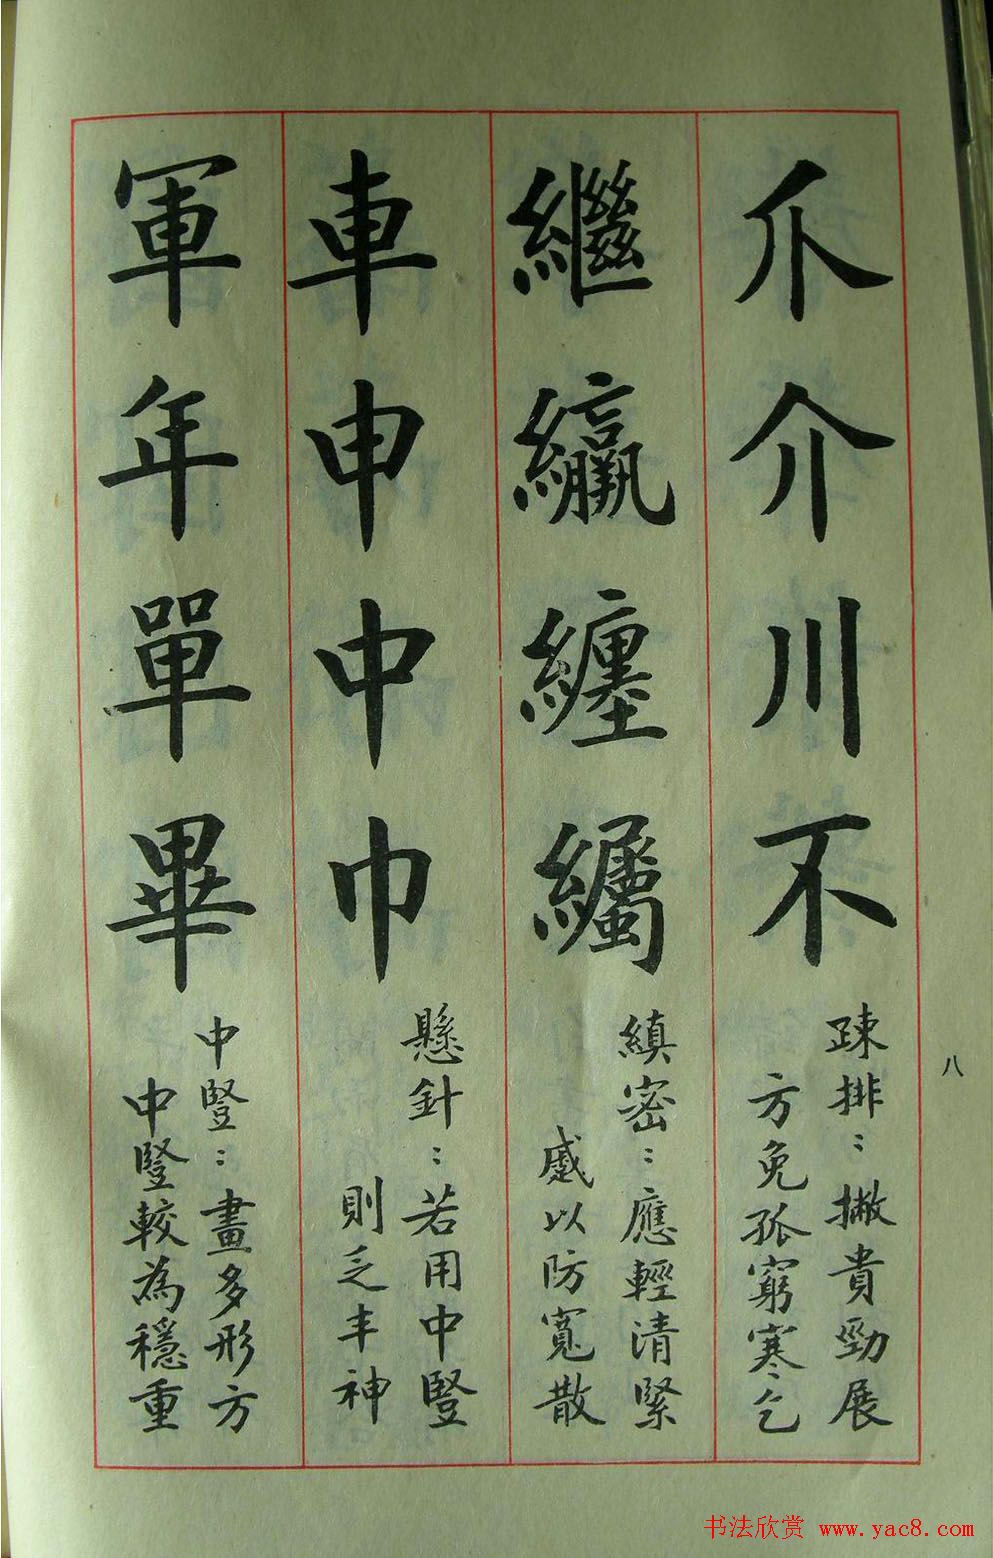 八
爪介川不
疎排：撇貴勁展
方免孤窮寒乞
繼纏
縝密：應輕清緊
戚以防寬散
車申中巾
懸針：若用中豎
則乏丰神
軍年單畢
中豎：畫多形方
中豎較為穩重
书法欣赏 www.yac8.com